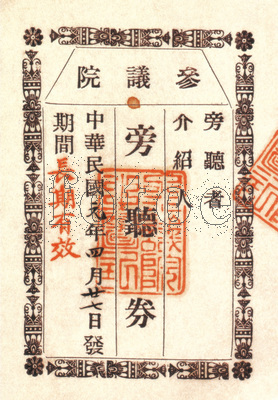 參議院
旁聽者
介紹人
旁聽券
中華民國元年四月廿七日發
期間長期有效